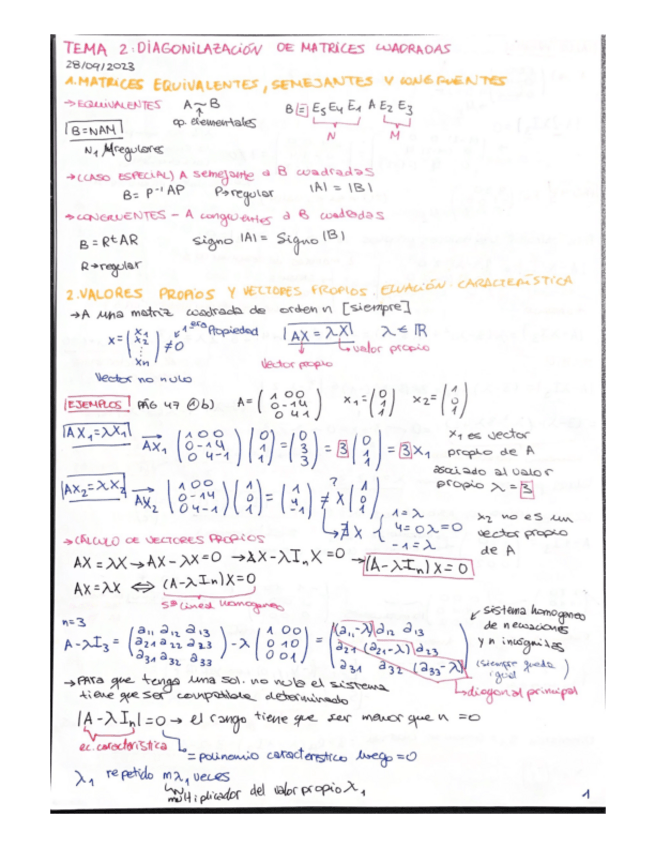 TEMA 2: DIAGONILAZACIÓN DE MATRICES CUADRADAS
28/09/2023
1. MATRICES EQUIVALENTES, SEMEJANTES Y CONGRUENTES
→ EQUIVALENTES A ~ B B = E5 E4 E1 A E2 E3
op. elementales N M
B=NAM
N, M regulares
→ (CASO ESPECIAL) A semejante a B cuadradas
B = P⁻¹AP P→regular |A| = |B|
→ CONGRUENTES - A congruentes a B cuadradas
B = RᵗAR Signo |A| = Signo |B|
R→regular
2. VALORES PROPIOS Y VECTORES PROPIOS. ECUACIÓN CARACTERÍSTICA
→ A una matriz cuadrada de orden n [siempre]
X = (x1 x2 ⋮ xn) ≠ 0 1era Propiedad AX = λX λ ∈ ℝ
vector propio valor propio
Vector no nulo
EJEMPLOS PÁG 47 ④b) A = (1 0 0 / 0 -1 4 / 0 4 -1) x1 = (0 / 1 / 1) x2 = (1 / 0 / 1)
AX1=λX1 → AX1 (1 0 0 / 0 -1 4 / 0 4 -1) (0 / 1 / 1) = (0 / 3 / 3) = 3 (0 / 1 / 1) = 3X1
x1 es vector
propio de A
asociado al valor
propio λ = 3
AX2=λX2 → AX2 (1 0 0 / 0 -1 4 / 0 4 -1) (1 / 0 / 1) = (1 / 4 / -1) ≠ λ (1 / 0 / 1)
?
∄ λ { 1=λ / 4=0λ=0 / -1=λ
x2 no es un
vector propio
de A
→ CÁLCULO DE VECTORES PROPIOS
AX = λX → AX - λX = 0 → AX - λInX = 0 → (A-λIn)X = 0
AX = λX ⟺ (A-λIn)X=0
Sª Lineal Homogéneo
n=3
A-λI3 = (a11 a12 a13 / a21 a22 a23 / a31 a32 a33) - λ (1 0 0 / 0 1 0 / 0 0 1) = ((a11-λ) a12 a13 / a21 (a21-λ) a23 / a31 a32 (a33-λ))
sistema homogeneo
de n ecuaciones
y n incógnitas
(siempre queda igual)
diagonal principal
→ Para que tenga una sol. no nula el sistema
tiene que ser compatible determinado
|A-λIn|=0 → el rango tiene que ser menor que n =0
ec. característica = polinomio característico luego =0
λ1 repetido mλ1 veces
multiplicador del valor propio λ1
1